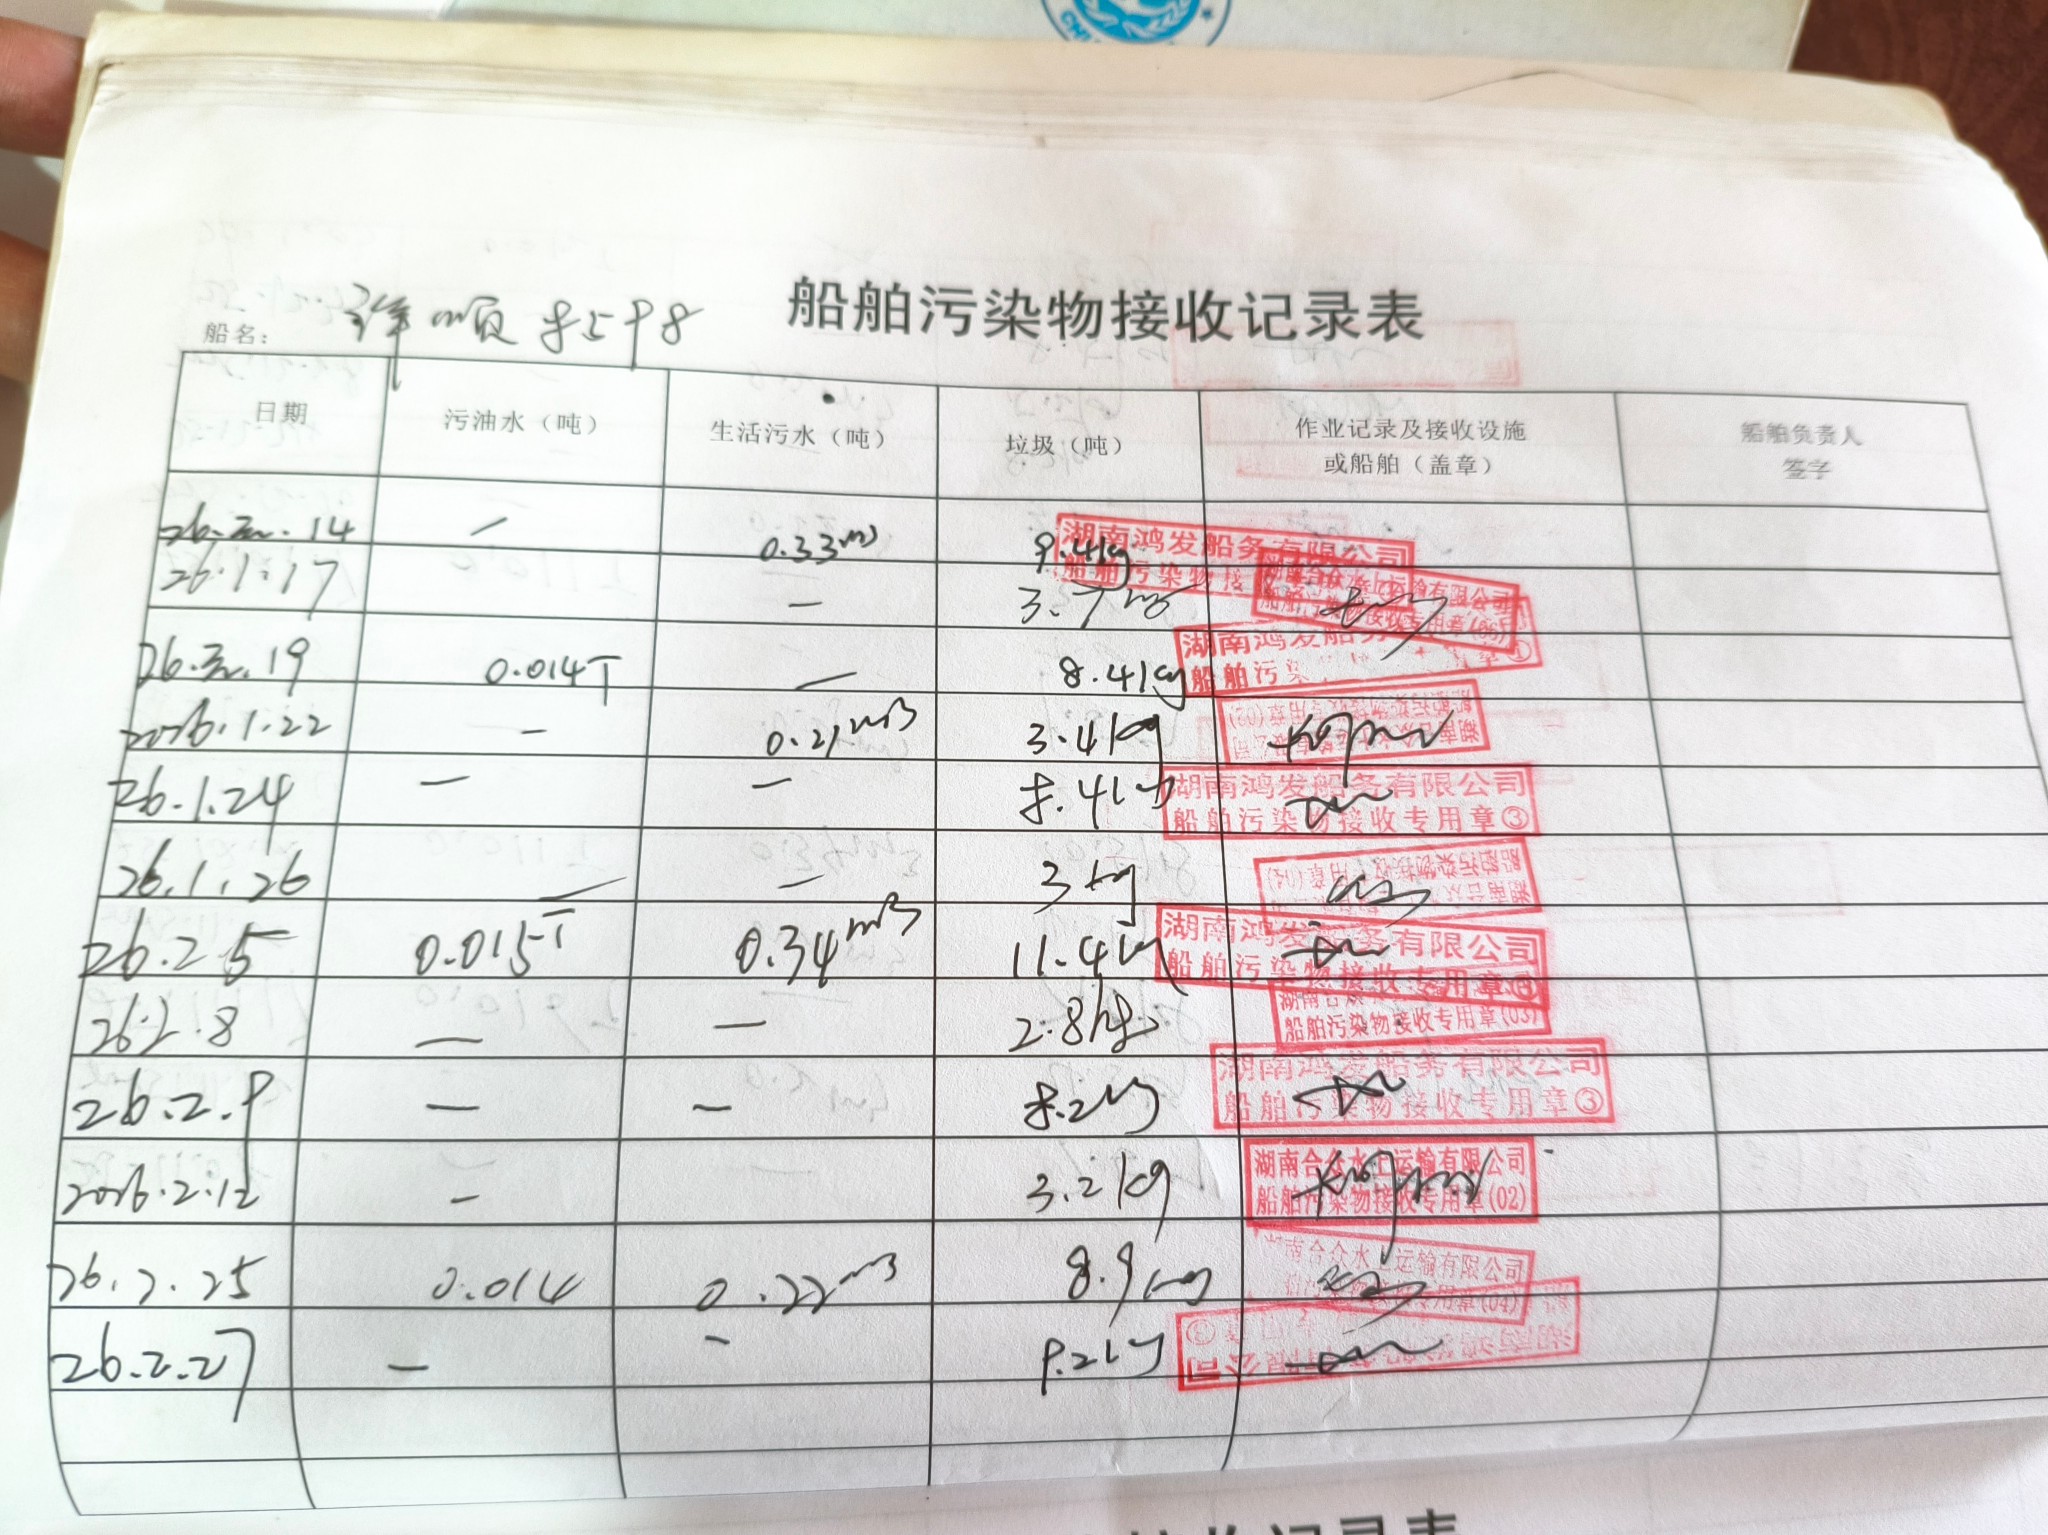 船舶污染物接收记录表
船名： 祥顺8598
日期 污油水（吨） 生活污水（吨） 垃圾（吨） 作业记录及接收设施或船舶（盖章） 船舶负责人签字
26.元.14 — 0.33m3 9.4kg 湖南鸿发船务有限公司 船舶污染物接
26.1.17 — 3.7kg 湖南合众水上运输有限公司 船舶污染物接收专用章(06)
26.元.19 0.014T — 8.4kg 湖南鸿发船务 船舶污染
2026.1.22 — 0.21m3 3.4kg 船舶污染物接收专用章(02)
26.1.24 — — 8.4kg 湖南鸿发船务有限公司 船舶污染物接收专用章③
26.1.26 — — 3kg 船舶污染物接收专用章(04)
26.2.5 0.015T 0.34m3 11.4kg 湖南鸿发船务有限公司 船舶污染物接收专用章③
26.2.8 — — 2.8kg 船舶污染物接收专用章(03)
26.2.9 — — 8.2kg 湖南鸿发船务有限公司 船舶污染物接收专用章③
2026.2.12 — 3.2kg 湖南合众水上运输有限公司 船舶污染物接收专用章(02)
26.2.25 0.014 0.22m3 8.9kg 湖南合众水上运输有限公司 专用章(04)
26.2.27 — — 9.2kg
接收记录表